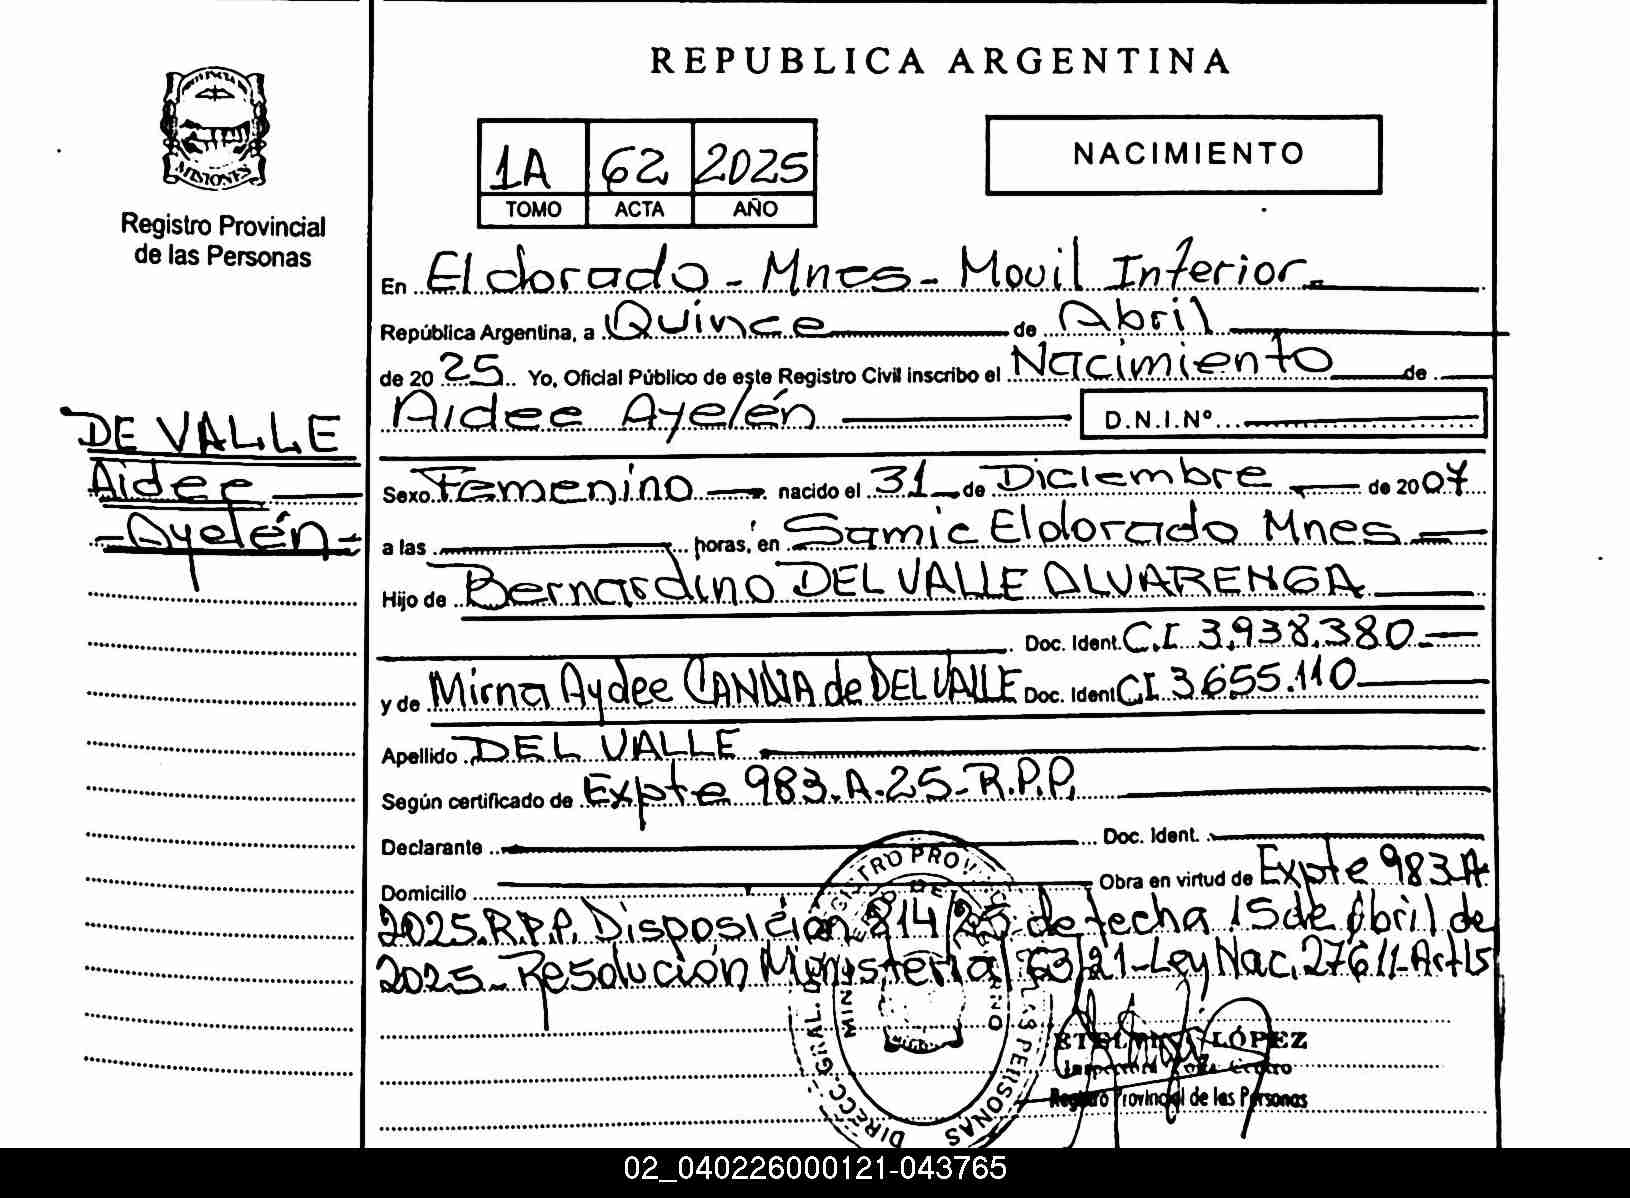 REPUBLICA ARGENTINA
PROVINCIA
MISIONES
Registro Provincial
de las Personas
1A 62 2025
TOMO ACTA AÑO
NACIMIENTO
En Eldorado - Mnes - Movil Interior.
República Argentina, a Quince de Abril
de 20 25 Yo, Oficial Público de este Registro Civil inscribo el Nacimiento de
Aidee Ayelén D.N.I.Nº
DE VALLE
Aidee
-Ayelén-
Sexo Femenino nacido el 31 de Diciembre de 20 07
a las horas, en Samic Eldorado Mnes
Hijo de Bernardino DEL VALLE ALVARENGA
Doc. Ident. C.I. 3.938.380.-
y de Mirna Aydee de DEL VALLE Doc. Ident C.I. 3655.110
Apellido DEL VALLE
Según certificado de Expte 983.A.25-R.P.P.
Declarante Doc. Ident.
Domicilio Obra en virtud de Expte 983.A
2025.R.P.P. Disposición 214/25 de fecha 15 de Abril de
2025- Resolución Ministerial 63/21-Ley Nac. 27611-Art 15
LÓPEZ
Registro Provincial de las Personas
02_040226000121-043765